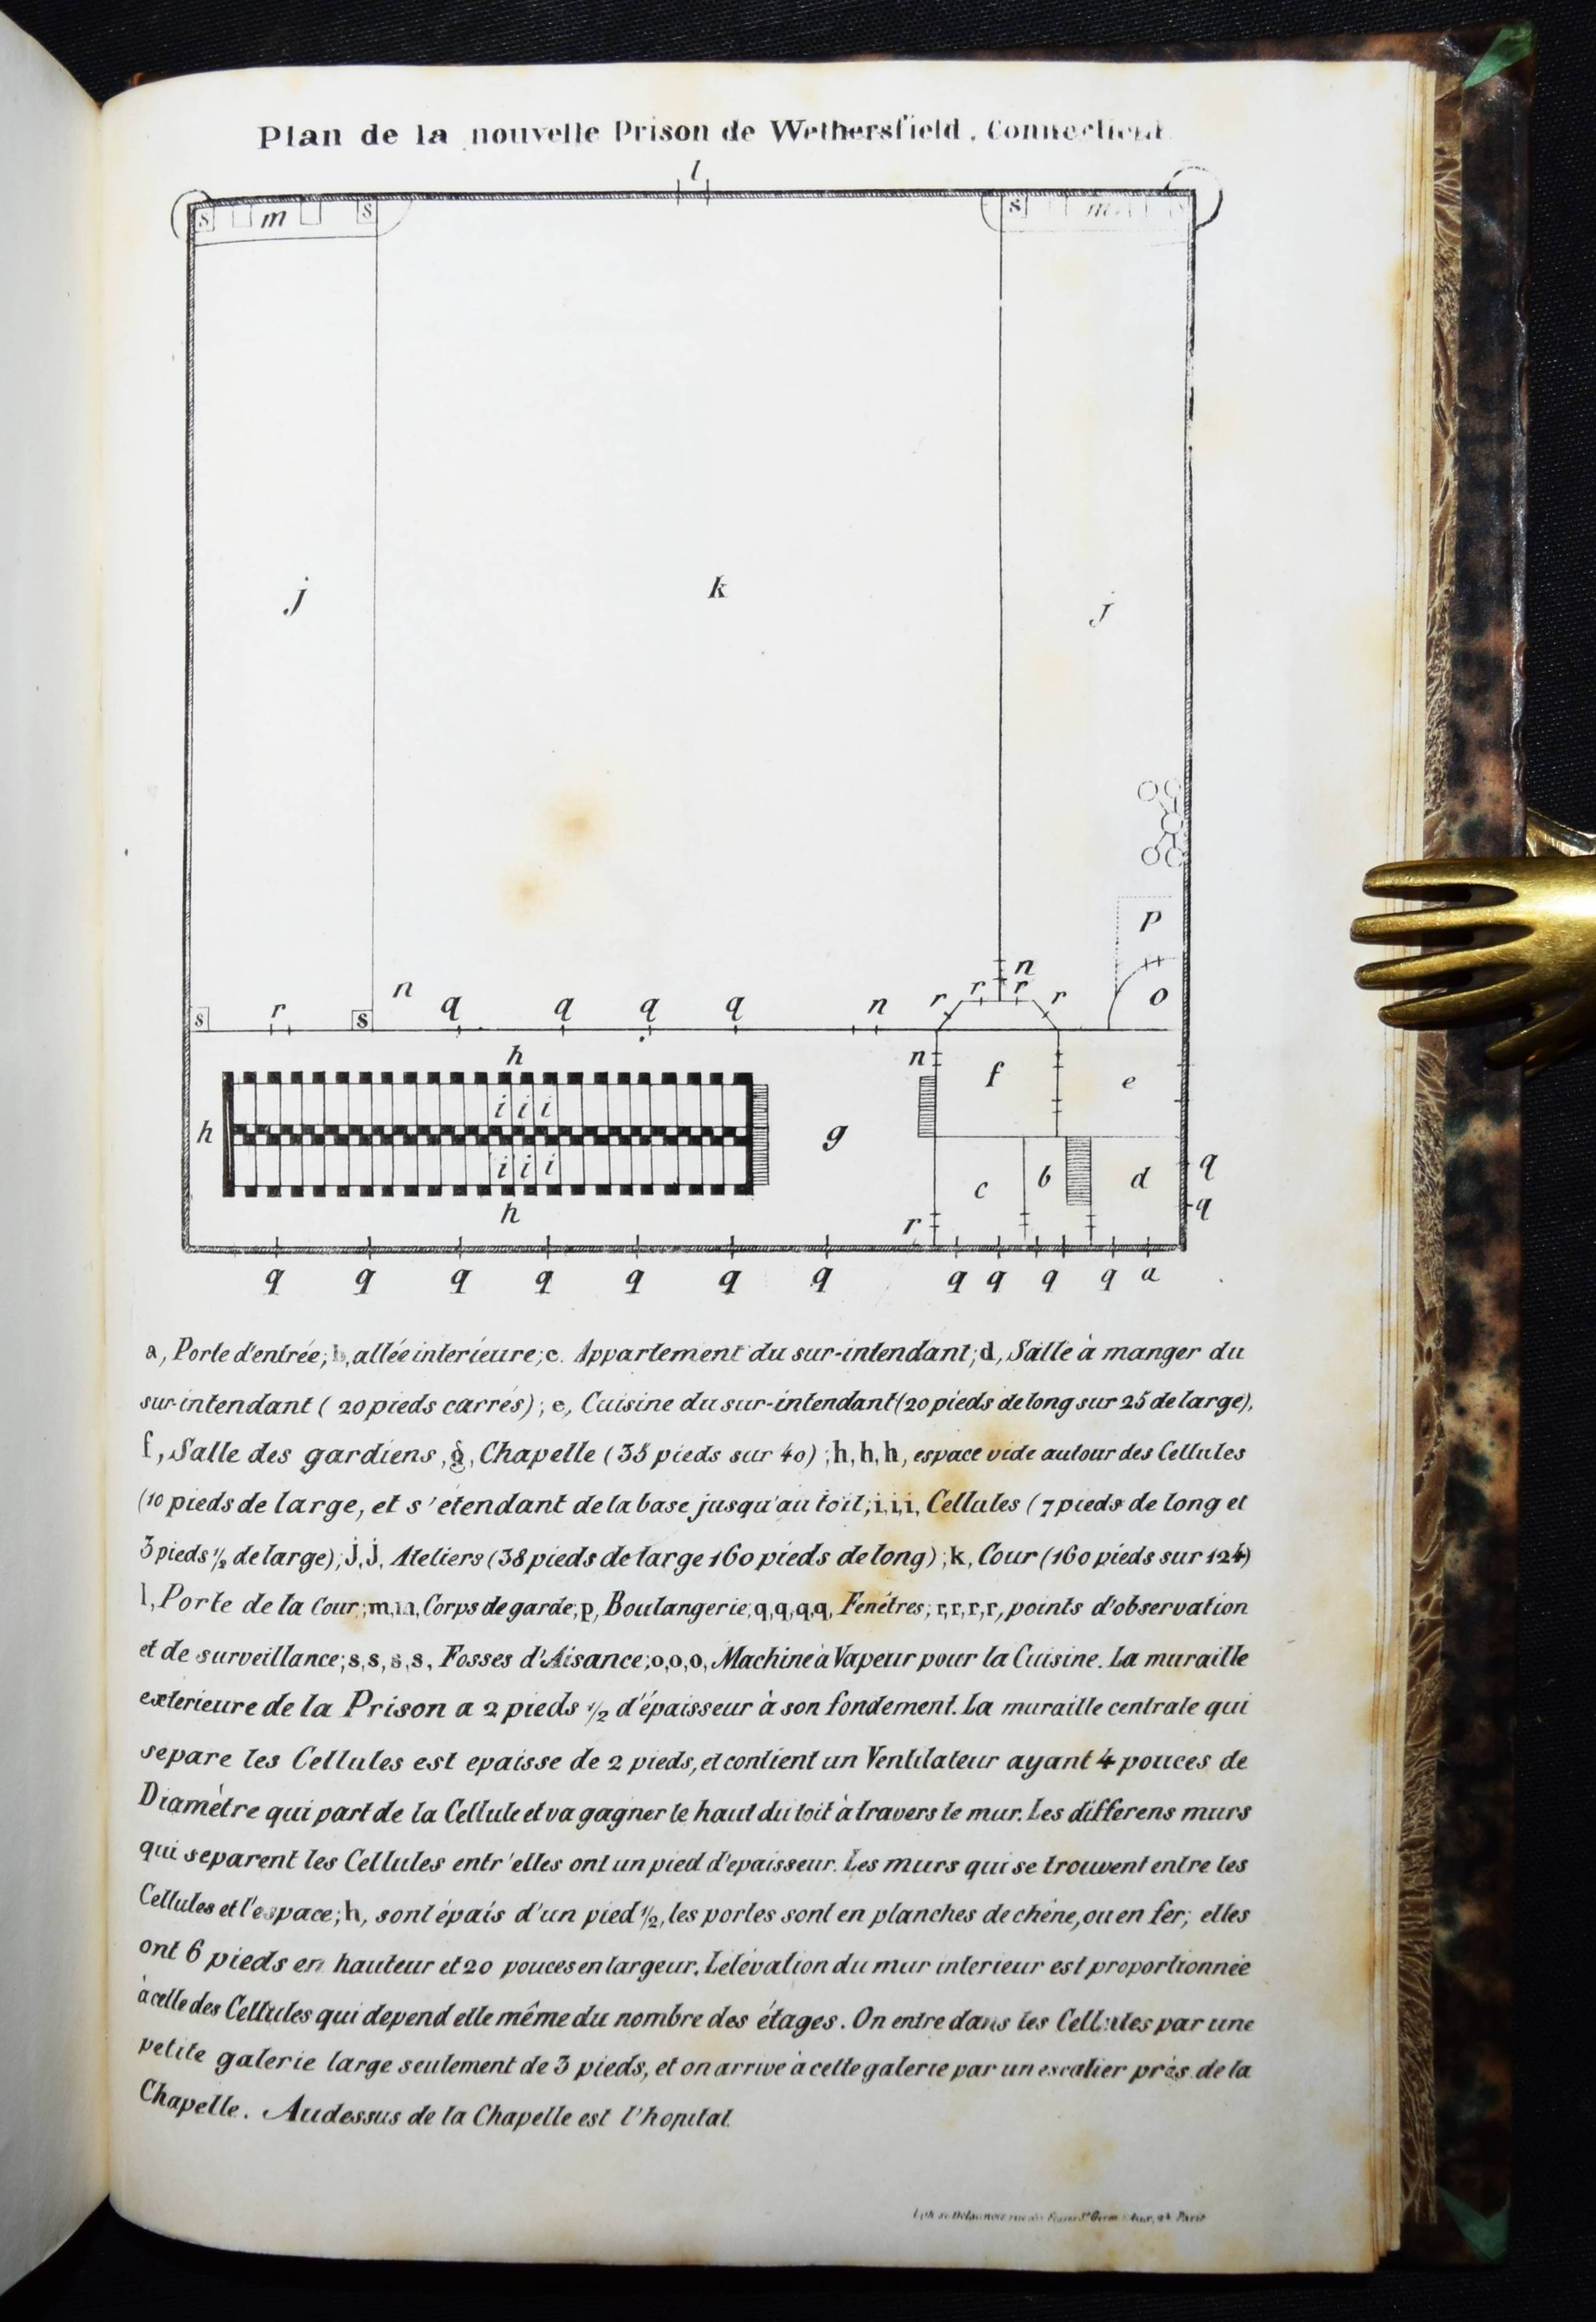 Plan de la nouvelle Prison de Wethersfield, Connecticut
l
s m s s m s
j k j
p
n
n q q q q n r r r r o
s r s
h n f e
i i i
h g
i i i c b d q
h r q
q q q q q q q q q q q a
a, Porte d'entrée; b, allée interieure; c. Appartement du sur-intendant; d, Salle à manger du
sur-intendant ( 20 pieds carrés ) ; e, Cuisine du sur-intendant (20 pieds de long sur 25 de large),
f, Salle des gardiens, g, Chapelle ( 35 pieds sur 40 ) ; h, h, h, espace vide autour des Cellules
(10 pieds de large, et s'étendant de la base jusqu'au toit; i, i, i, Cellules ( 7 pieds de long et
3 pieds ½ de large); j, j, Ateliers (38 pieds de large 160 pieds de long) ; k, Cour (160 pieds sur 124)
l, Porte de la Cour; m, m, Corps de garde; p, Boulangerie; q, q, q, q, Fenêtres; r, r, r, r, points d'observation
et de surveillance; s, s, s, s, Fosses d'Aisance; o, o, o, Machine à Vapeur pour la Cuisine. La muraille
exterieure de la Prison a 2 pieds ½ d'épaisseur à son fondement. La muraille centrale qui
separe les Cellules est epaisse de 2 pieds, et contient un Ventilateur ayant 4 pouces de
Diamètre qui part de la Cellule et va gagner le haut du toit à travers le mur. Les differens murs
qui separent les Cellules entr'elles ont un pied d'epaisseur. Les murs qui se trouvent entre les
Cellules et l'espace; h, sont épais d'un pied ½, les portes sont en planches de chêne, ou en fer; elles
ont 6 pieds en hauteur et 20 pouces en largeur. L'élévation du mur interieur est proportionnée
à celle des Cellules qui depend elle même du nombre des étages. On entre dans les Cellules par une
petite galerie large seulement de 3 pieds, et on arrive à cette galerie par un escalier près de la
Chapelle. Audessus de la Chapelle est l'hopital.
Paris